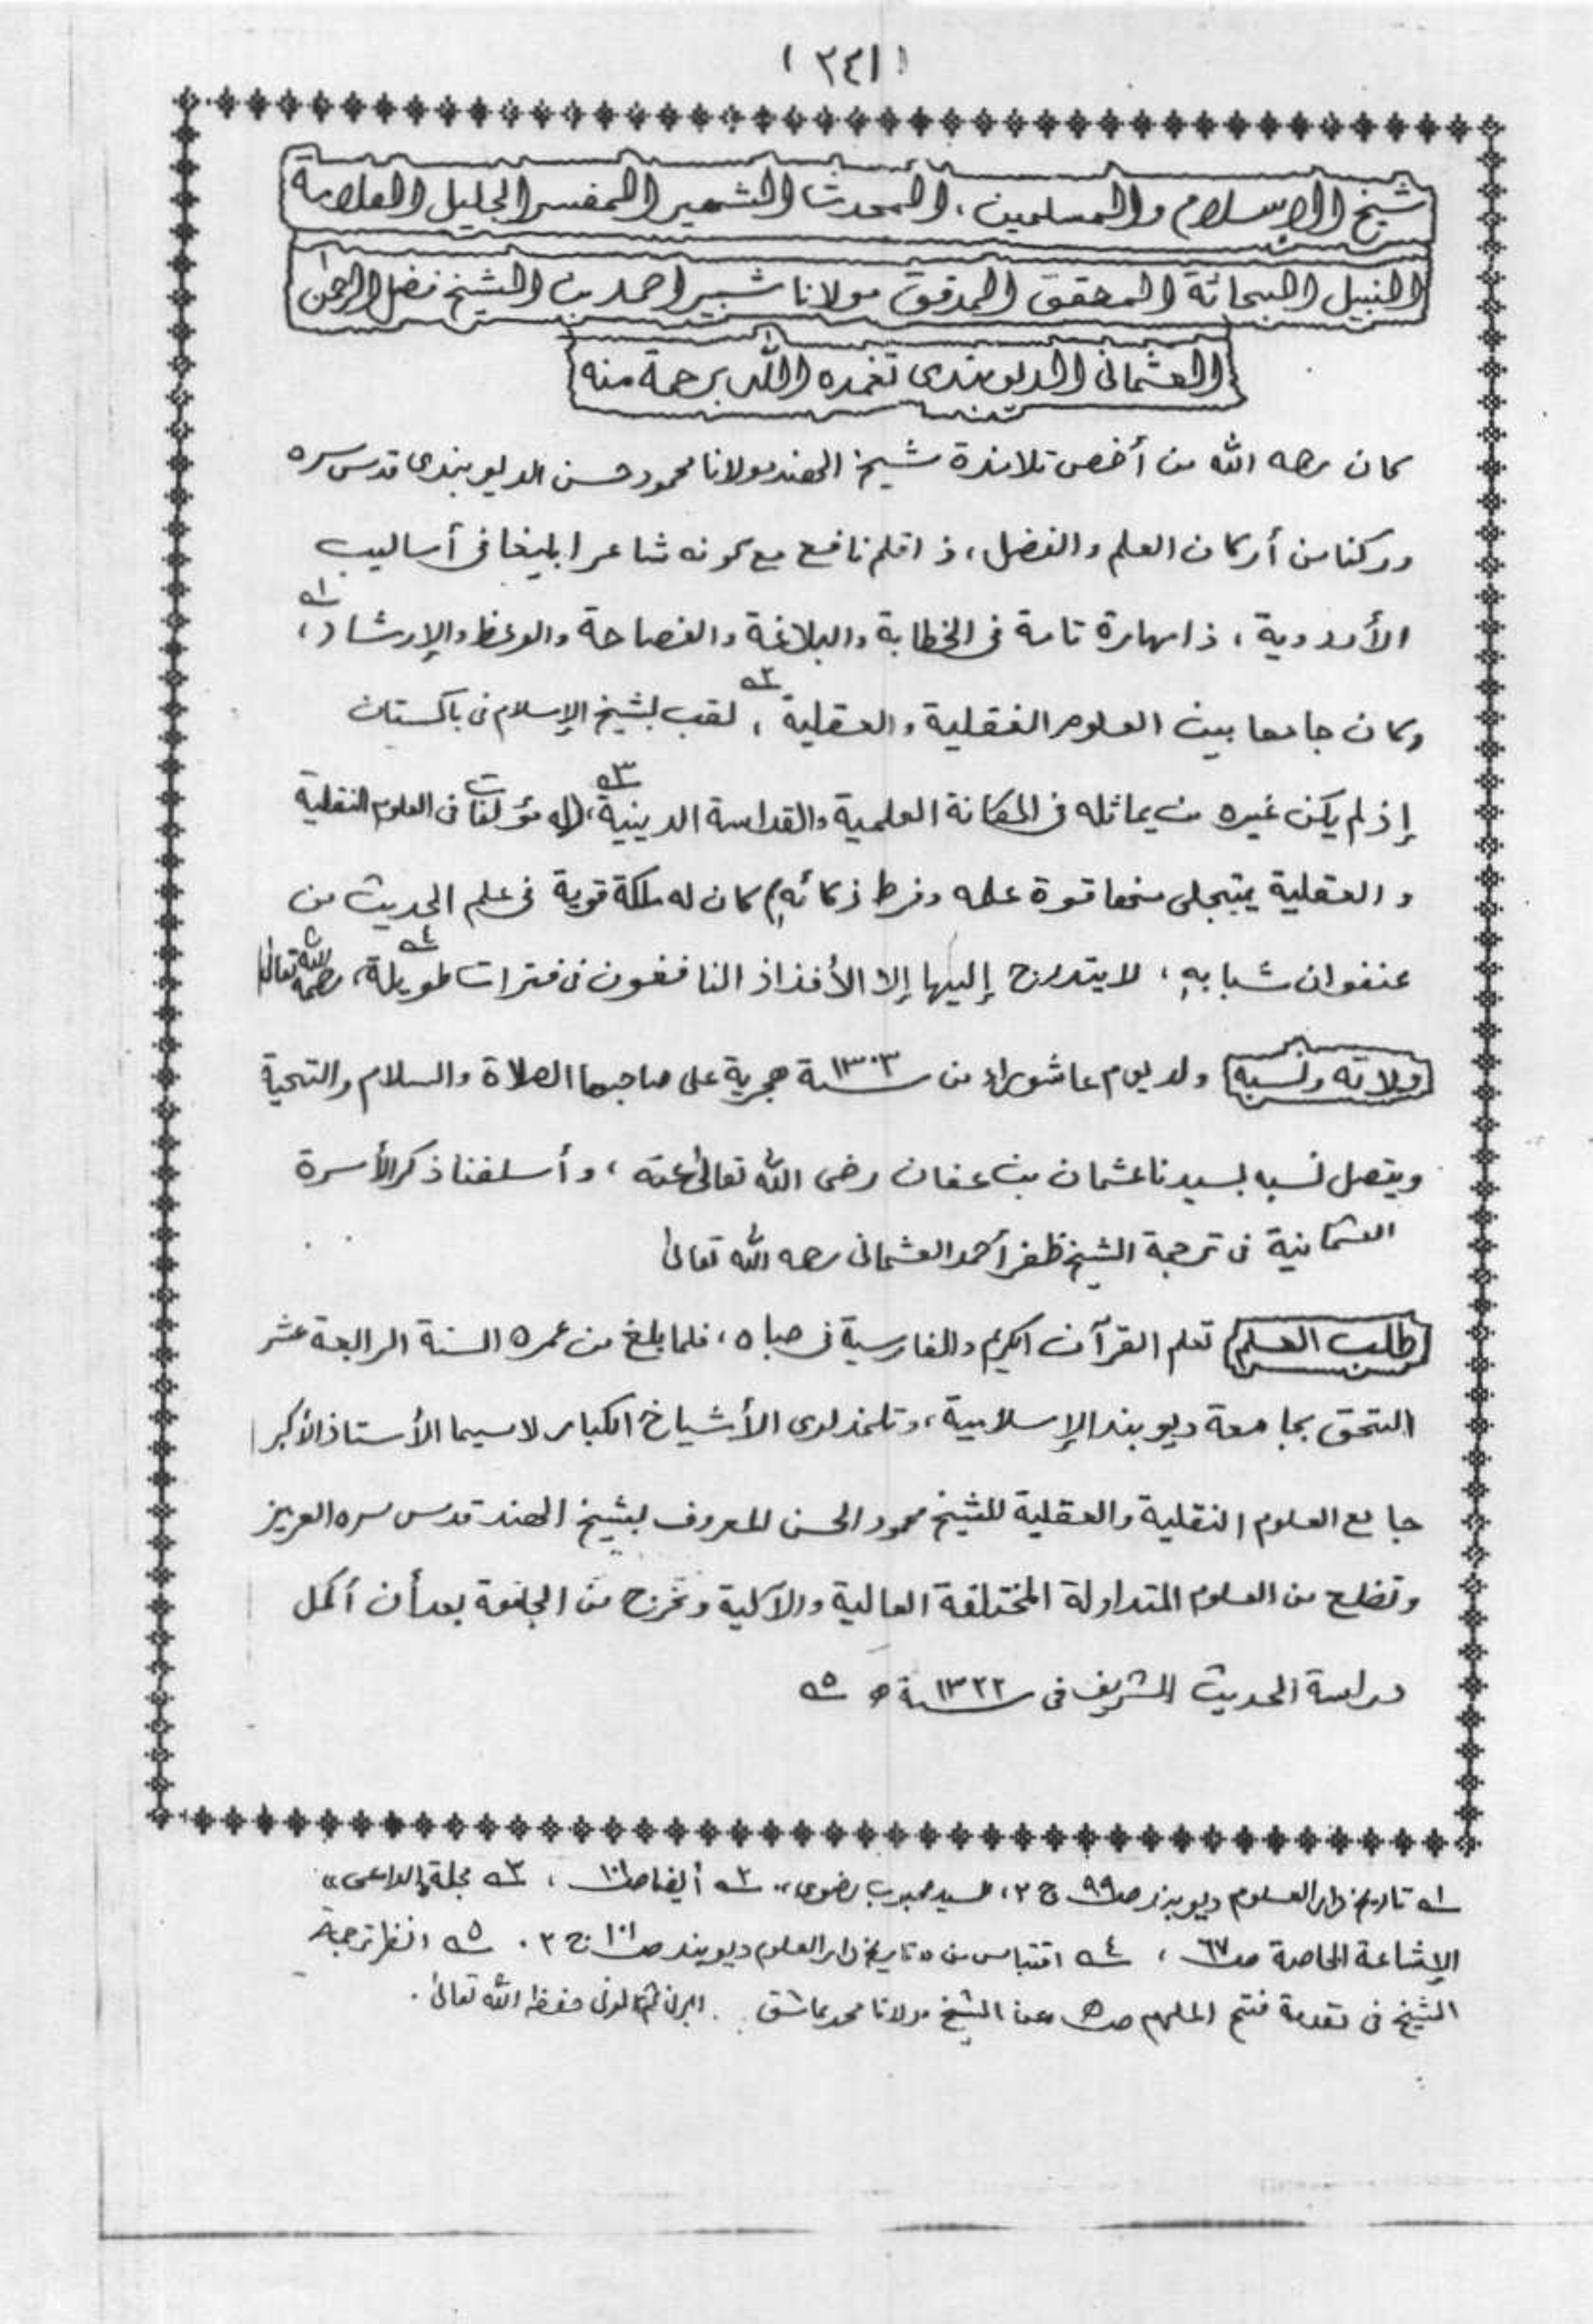 (٢٤١)
شيخ الإسلام والمسلمين، المحدث الشهير المفسر الجليل العلامة
النبيل البحاثة المحقق المدقق مولانا شبير احمد بن الشيخ فضل الرحمن
العثمانى الديوبندى تغمده الله برحمة منه
كان رحمه الله من أخص تلامذة شيخ الهند مولانا محمود حسن الديوبندى قدس سره
وركنا من أركان العلم والفضل، ذا قلم نافع مع كونه شاعرا بليغا فى أساليب
الأردوية، ذا مهارة تامة فى الخطابة والبلاغة والفصاحة والوعظ والإرشاد، ١ه
وكان جامعا بين العلوم النقلية والعقلية ٢ه، لقب بشيخ الإسلام فى باكستان
إذ لم يكن غيره من يماثله فى المكانة العلمية والقداسة الدينية ٣ه، (له مؤلفات فى العلوم النقلية
والعقلية يتجلى منها قوة علمه وفرط ذكائه) كان له ملكة قوية فى علم الحديث من
عنفوان شبابه، لا يتدرج إليها إلا الأفذاذ النافغون فى فترات طويلة ٤ه، رحمه الله تعالى
ولادته ونسبه ولد يوم عاشوراء من سنة ١٣٠٣ هجرية على صاحبها الصلاة والسلام والتحية
ويتصل نسبه لسيدنا عثمان بن عفان رضى الله تعالى عنه، وأسلفنا ذكر الأسرة
العثمانية فى ترجمة الشيخ ظفر أحمد العثمانى رحمه الله تعالى
طلب العلم تعلم القرآن الكريم والفارسية فى صباه، فلما بلغ من عمره السنة الرابعة عشر
التحق بجامعة ديوبند الإسلامية، وتلمذ لدى الأشياخ الكبار لاسيما الأستاذ الأكبر
جامع العلوم النقلية والعقلية للشيخ محمود الحسن المعروف بشيخ الهند قدس سره العزيز
وتضلع من العلوم المتداولة المختلفة العالية والآلية وتخرج من الجامعة بعد أن أكمل
دراسة الحديث الشريف فى سنة ١٣٢٢ ه ٥ه
١ه تاريخ دار العلوم ديوبند ص ٩٩ ج ٢، للسيد محبوب رضوى، ٢ه أيضا ص ١٠١، ٣ه مجلة "الداعى"
الإشاعة الخاصة ص ٦٧، ٤ه اقتباس من تاريخ دار العلوم ديوبند ص ١٠١ ج ٢. ٥ه انظر ترجمة
الشيخ فى تقدمة فتح الملهم ص عن الشيخ مولانا محمد عاشق حفظه الله تعالى.